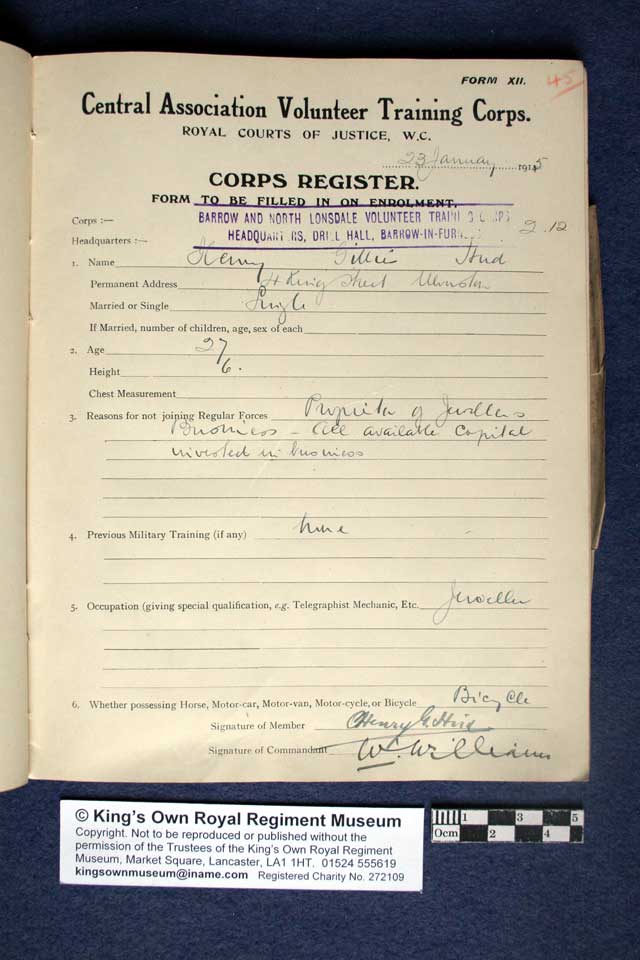 FORM XII. 45
Central Association Volunteer Training Corps.
ROYAL COURTS OF JUSTICE, W.C.
23 January 1915
CORPS REGISTER.
FORM TO BE FILLED IN ON ENROLMENT.
Corps :— BARROW AND NORTH LONSDALE VOLUNTEER TRAINING CORPS
Headquarters :— HEADQUARTERS, DRILL HALL, BARROW-IN-FURNESS 2.12
1. Name Henry
Permanent Address 4 King Street Ulverston
Married or Single Single
If Married, number of children, age, sex of each
2. Age 27
Height 6.
Chest Measurement
3. Reasons for not joining Regular Forces Proprietor of Jewellers
Business – All available Capital
invested in business
4. Previous Military Training (if any) none
5. Occupation (giving special qualification, e.g. Telegraphist Mechanic, Etc. Jeweller
6. Whether possessing Horse, Motor-car, Motor-van, Motor-cycle, or Bicycle Bicycle
Signature of Member Henry G.
Signature of Commandant W. Williams
© King's Own Royal Regiment Museum
Copyright. Not to be reproduced or published without the
permission of the Trustees of the King's Own Royal Regiment
Museum, Market Square, Lancaster, LA1 1HT. 01524 555619
kingsownmuseum@iname.com Registered Charity No. 272109
1 3 5
0cm 2 4